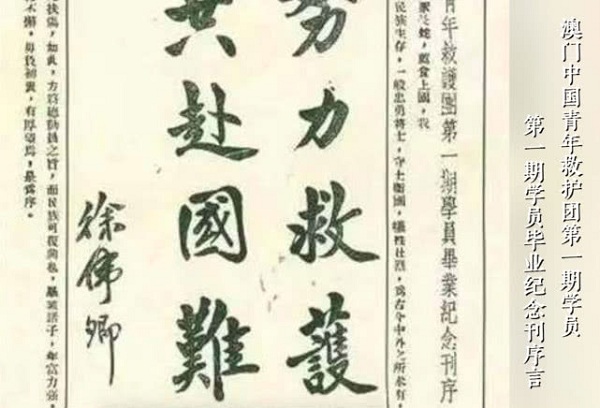 澳门中国青年救护团第一期学员
第一期学员毕业纪念刊序言
青年救護團第一期學員畢業紀念刊序
蛇，薦食上國，我
民族生存，一般忠勇將士，守土衛國，犧牲壯烈，為古今中外之所未有，
努力救護
共赴國難
徐偉卿
扶傷，如此，方為之旨，而民族可復興矣，諸子，年富力強，
不懈，毋負初衷，有厚望焉，是為序。